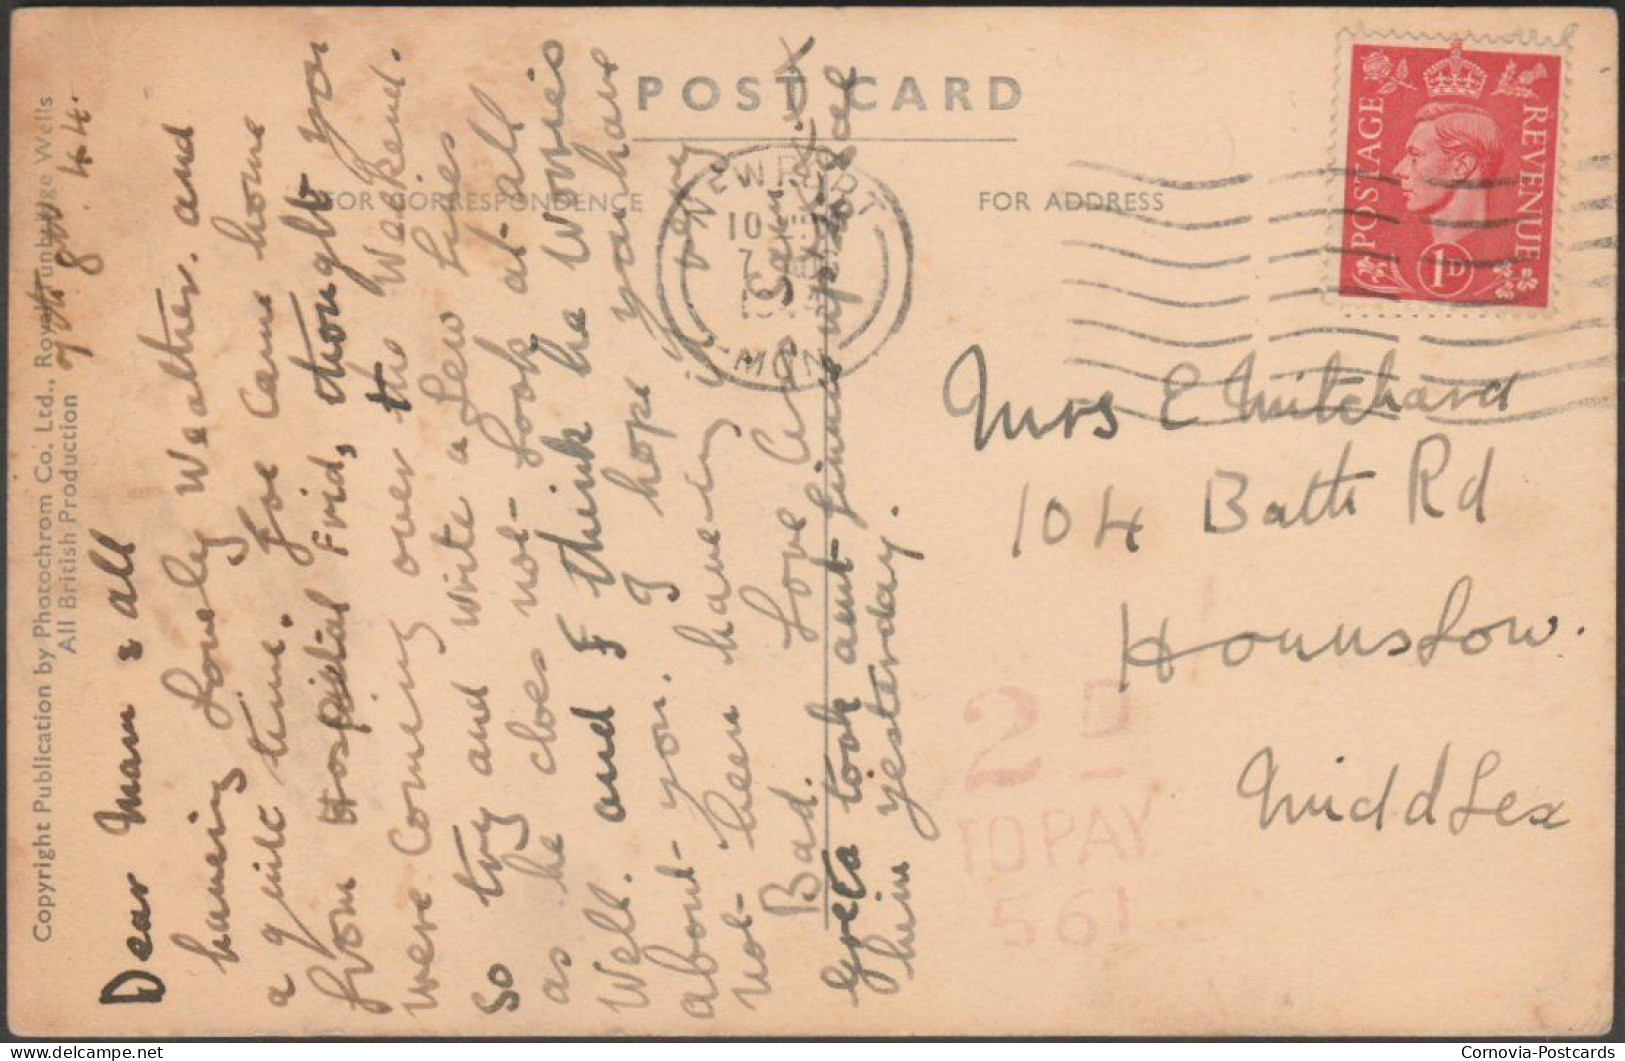 POST CARD
FOR CORRESPONDENCE
FOR ADDRESS
Copyright Publication by Photochrom Co. Ltd., Royal Tunbridge Wells
All British Production
7 8 44.
Dear Mam & all
having lovely weather. and
a quite time. Joe came home
from Hospital Frid, thought you
were coming over the Weekend.
So try and write a few lines
as he does not look at all
Well. and I think he Worries
about you. I hope you have
not been having it very
Bad. Love
Greta took aunt up to see
him yesterday.
NEWPORT
MON
POSTAGE
REVENUE
1D
Mrs E Mitchard
104 Bath Rd
Hounslow.
Middlesex
2D
TO PAY
561
delcampe.net
Cornovia-Postcards